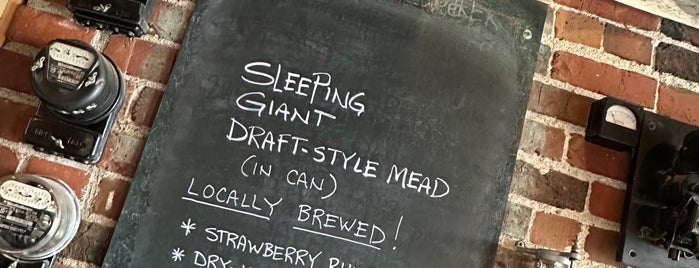 SLEEPING
GIANT
DRAFT-STYLE MEAD
(IN CAN)
LOCALLY BREWED!
* STRAWBERRY
* DRY-